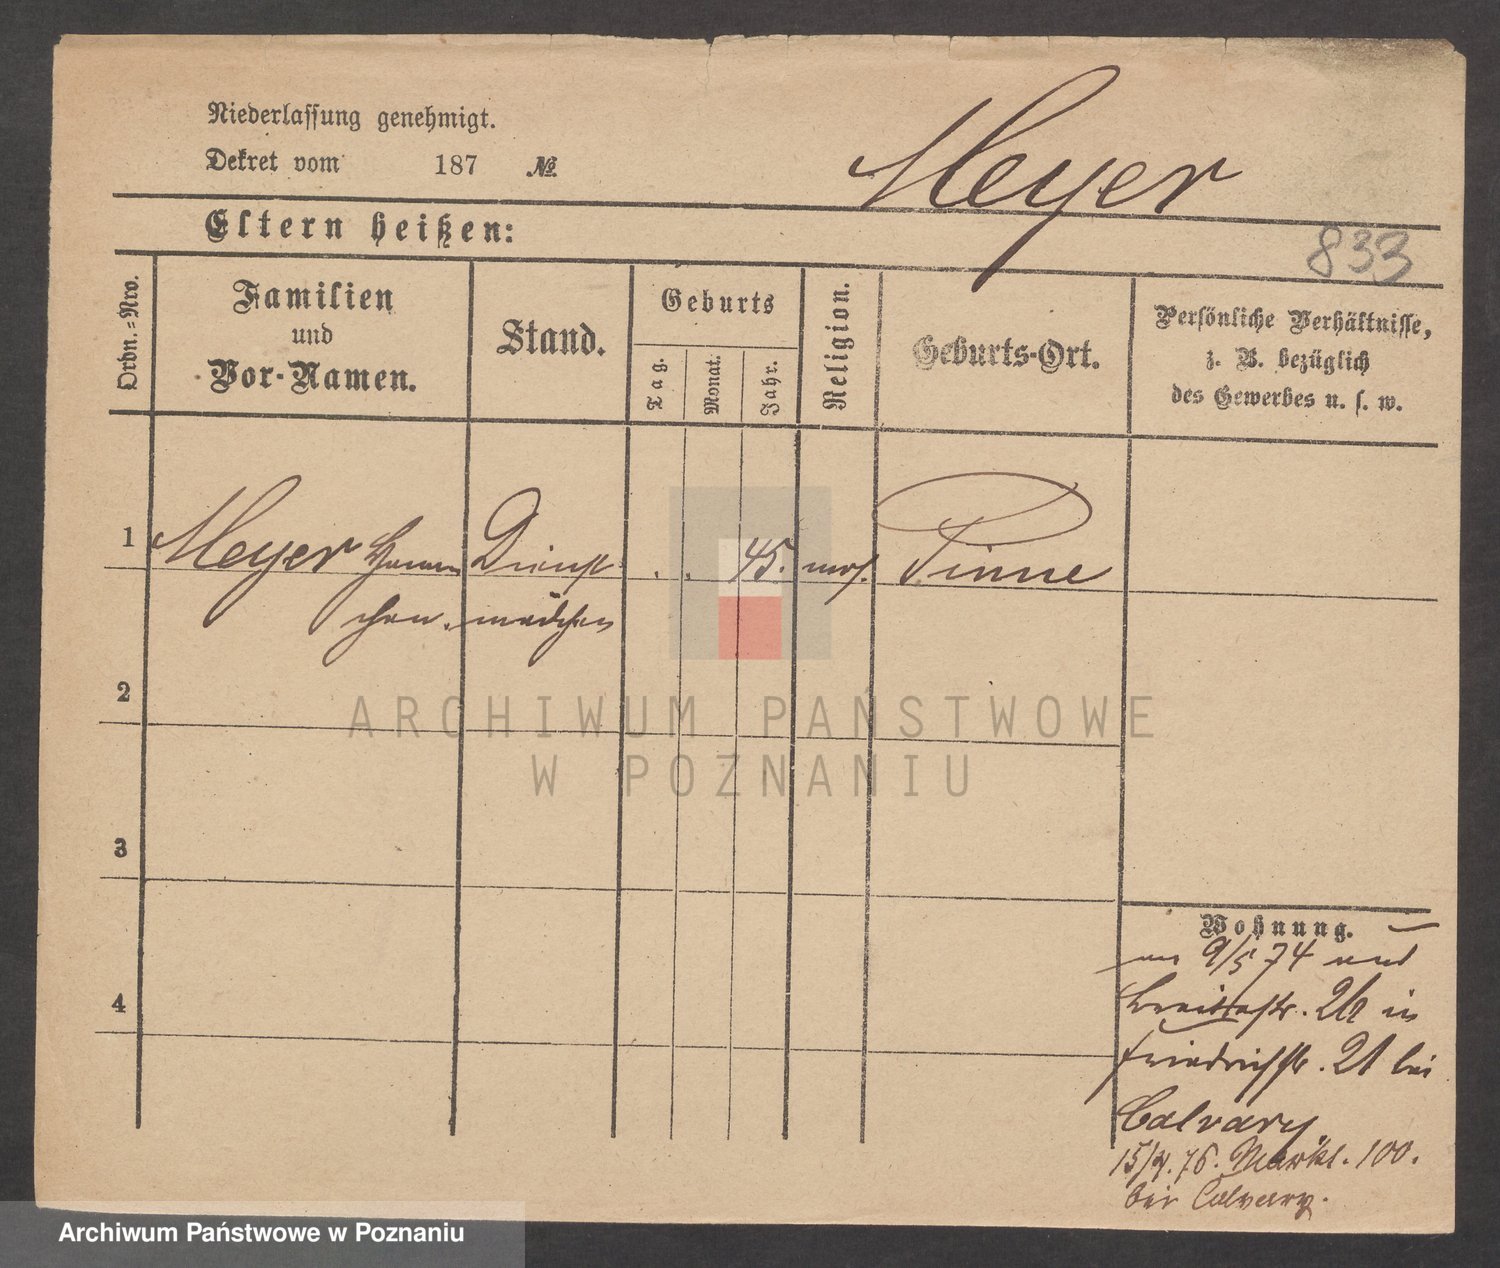 Niederlassung genehmigt.
Meyer
Dekret vom 187 №
Eltern heißen:
833
Ordn.=Nro.
Familien
und
Vor-Namen.
Stand.
Geburts
Tag.
Monat.
Jahr.
Religion.
Geburts-Ort.
Persönliche Verhältnisse,
z. B. bezüglich
des Gewerbes u. s. w.
1 Meyer Hann Dienst . . 45. mos. Pinne
chen. mädchen
2
3
4
Wohnung.
9/5 74 und
Breitestr. 26 in
Friedrichstr. 21 bei
Calvary
15/4.76. Markt. 100.
bei Calvary.
ARCHIWUM PAŃSTWOWE
W POZNANIU
Archiwum Państwowe w Poznaniu